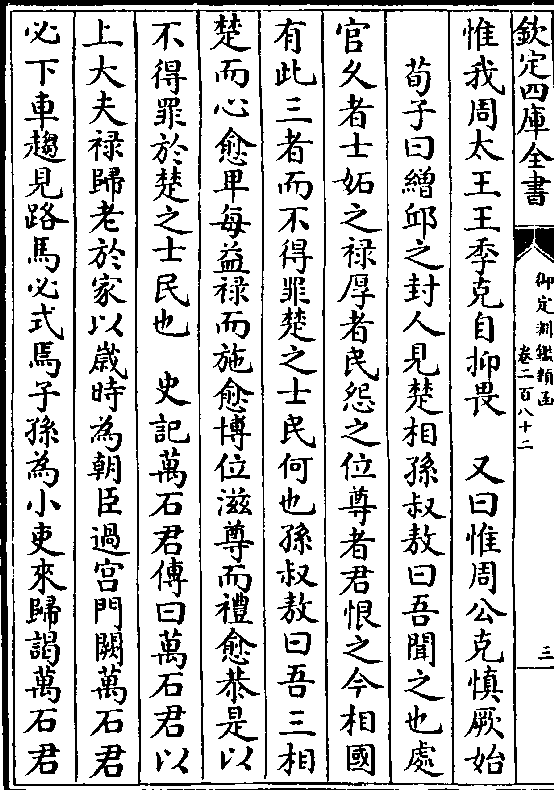 欽定四庫全書
御定淵鑑類函
卷二百八十二
三
惟我周太王王季克自抑畏　又曰惟周公克慎厥始
荀子曰繒邱之封人見楚相孫叔敖曰吾聞之也處
官久者士妬之祿厚者民怨之位尊者君恨之今相國
有此三者而不得罪楚之士民何也孫叔敖曰吾三相
楚而心愈卑每益祿而施愈博位滋尊而禮愈恭是以
不得罪於楚之士民也　史記萬石君傳曰萬石君以
上大夫祿歸老於家以歲時為朝臣過宫門闕萬石君
必下車趨見路馬必式焉子孫為小吏來歸謁萬石君